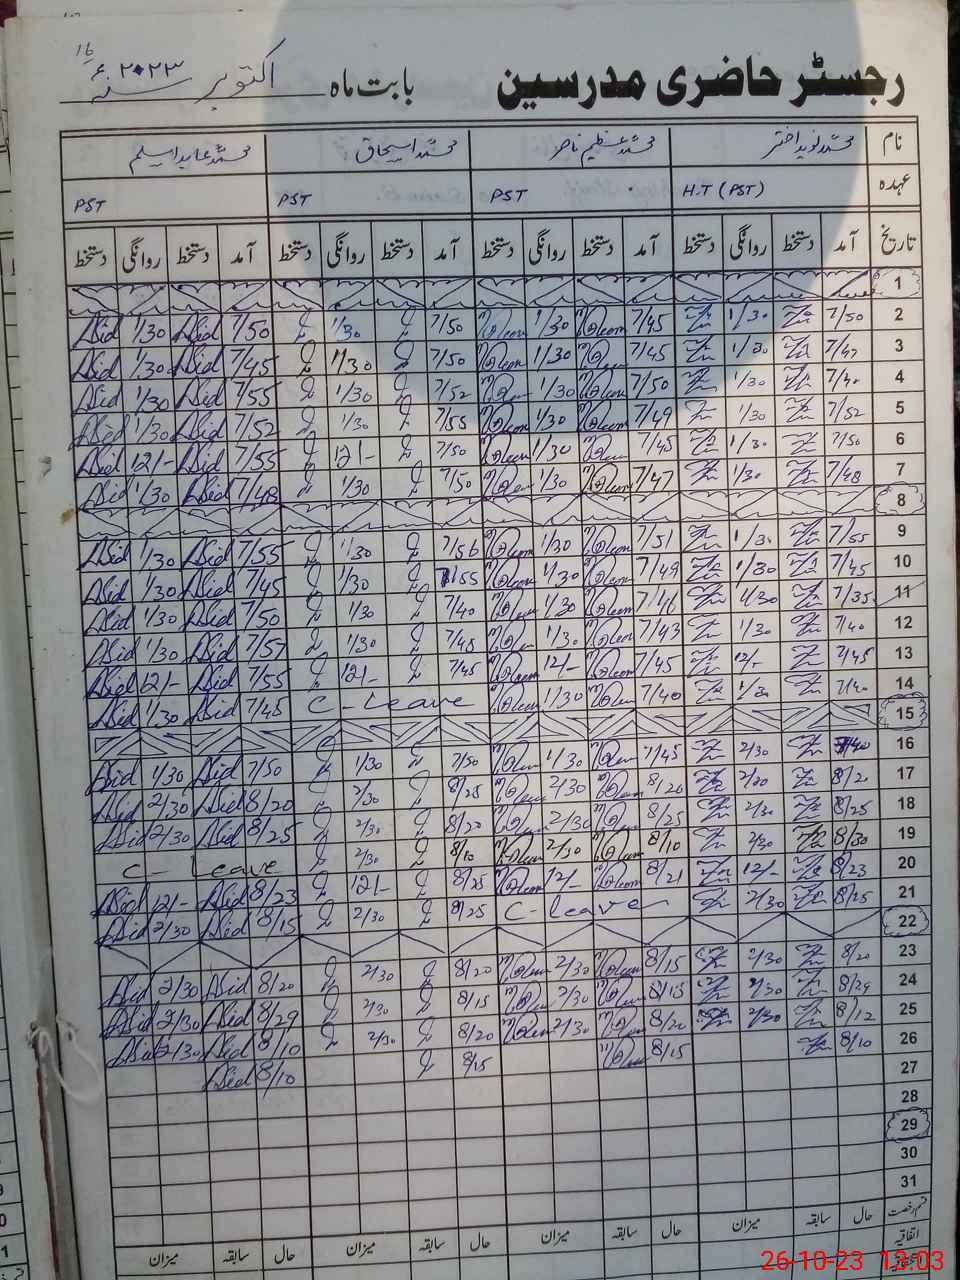 رجسٹر حاضری مدرسین بابت ماہ اکتوبر سنہ ۲۰۲۳ء
16
نام محمد نوید اختر محمد عظیم ناصر محمد اسحاق محمد عابد اسلم
عہدہ H.T (PST) PST PST PST
تاریخ آمد دستخط روانگی دستخط آمد دستخط روانگی دستخط آمد دستخط روانگی دستخط آمد دستخط روانگی دستخط
1
2 7/50 1/30 7/45 1/30 7/50 1/30 7/50 1/30
3 7/47 1/30 7/45 1/30 7/50 1/30 7/45 1/30
4 7/40 1/30 7/50 1/30 7/52 1/30 7/55 1/30
5 7/52 1/30 7/49 1/30 7/55 1/30 7/52 1/30
6 7/50 1/30 7/45 1/30 7/50 12/- 7/55 12/-
7 7/48 1/30 7/47 1/30 7/50 1/30 7/48 1/30
8
9 7/55 1/30 7/51 1/30 7/56 1/30 7/55 1/30
10 7/45 1/30 7/49 1/30 7/55 1/30 7/45 1/30
11 7/35 1/30 7/46 1/30 7/40 1/30 7/50 1/30
12 7/40 1/30 7/43 1/30 7/45 1/30 7/57 1/30
13 7/45 12/- 7/45 12/- 7/45 12/- 7/55 12/-
14 7/40 1/30 7/40 1/30 C-leave 7/45 1/30
15
16 7/40 2/30 7/45 1/30 7/50 1/30 7/50 1/30
17 8/20 2/30 8/20 2/30 8/25 2/30 8/20 2/30
18 8/25 2/30 8/25 2/30 8/20 2/30 8/25 2/30
19 8/30 2/30 8/10 2/30 8/10 2/30 C-leave
20 8/23 12/- 8/21 12/- 8/25 12/- 8/23 12/-
21 8/25 2/30 C-leave 8/25 2/30 8/15 2/30
22
23 8/20 2/30 8/15 2/30 8/20 2/30 8/20 2/30
24 8/29 2/30 8/15 2/30 8/15 2/30 8/29 2/30
25 8/12 2/30 8/20 2/30 8/20 2/30 8/10 2/30
26 8/10 8/15 8/15 8/10
27
28
29
30
31
قسم رخصت حال سابقہ میزان حال سابقہ میزان حال سابقہ میزان حال سابقہ میزان
اتفاقیہ
26-10-23 13:03